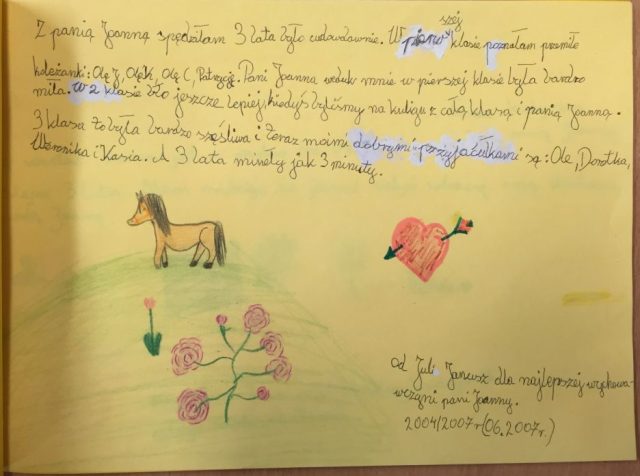 Z panią Joanną spędziłam 3 lata było cudowdownie. W pierwszej klasie poznałam przemiłe
koleżanki: Olę J, OlęK, Olę C, Patrycję. Pani Joanna według mnie w pierszej klasie była bardzo
miła. W 2 klasie bło jeszcze lepiej, kiedyś byliśmy na kuligu z całą klasą i panią Joanną.
3 klasa to była bardzo szęśliwa i teraz moimi dobrymi przyjaćułkami są: Ole, Dorotka,
Weronika i Kasia. A 3 lata minęły jak 3 minuty.
od Juli Janusz dla najlepszej wychowa-
wczyni pani Joanny.
2004/2007r (06.2007r.)